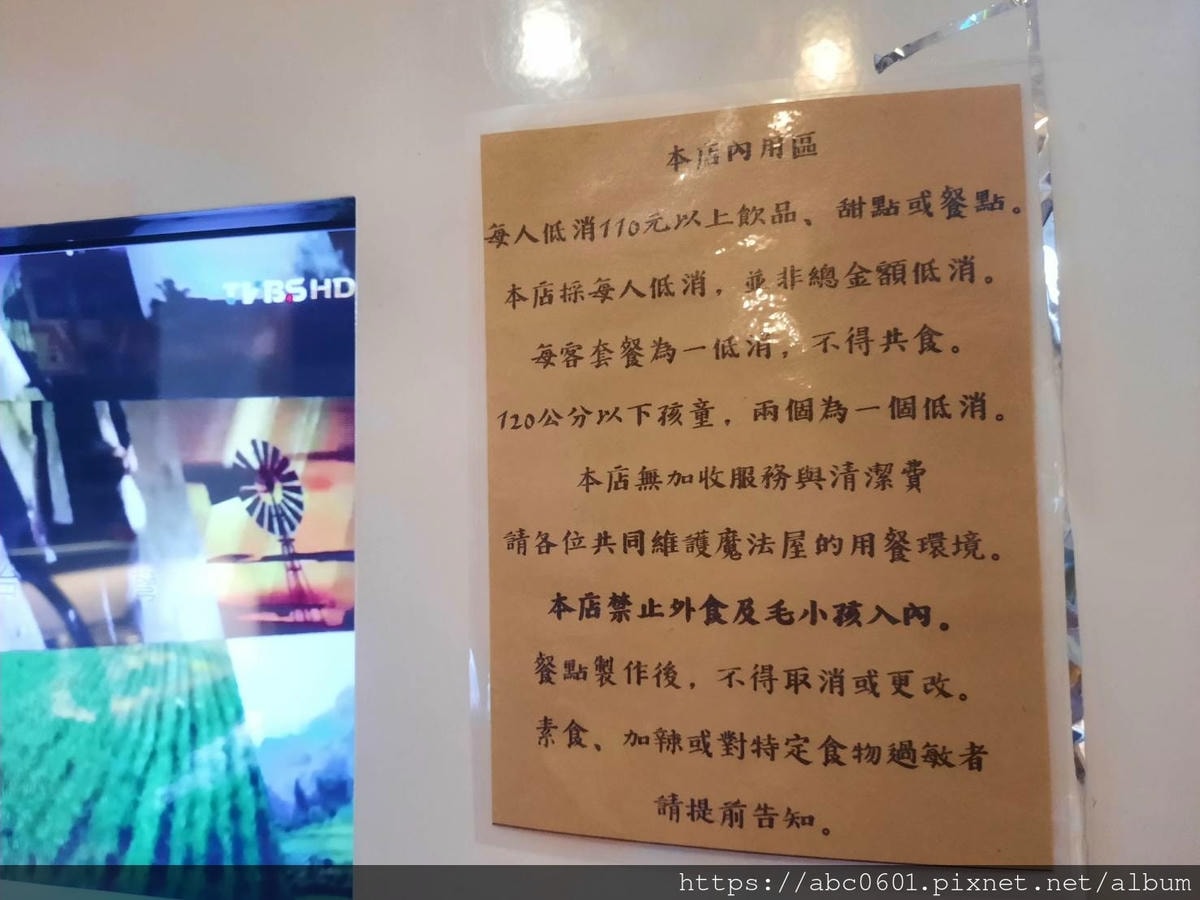 TVBS HD
本店內用區
每人低消110元以上飲品、甜點或餐點。
本店採每人低消，並非總金額低消。
每客套餐為一低消，不得共食。
120公分以下孩童，兩個為一個低消。
本店無加收服務與清潔費
請各位共同維護魔法屋的用餐環境。
本店禁止外食及毛小孩入內。
餐點製作後，不得取消或更改。
素食、加辣或對特定食物過敏者
請提前告知。
https://abc0601.pixnet.net/album